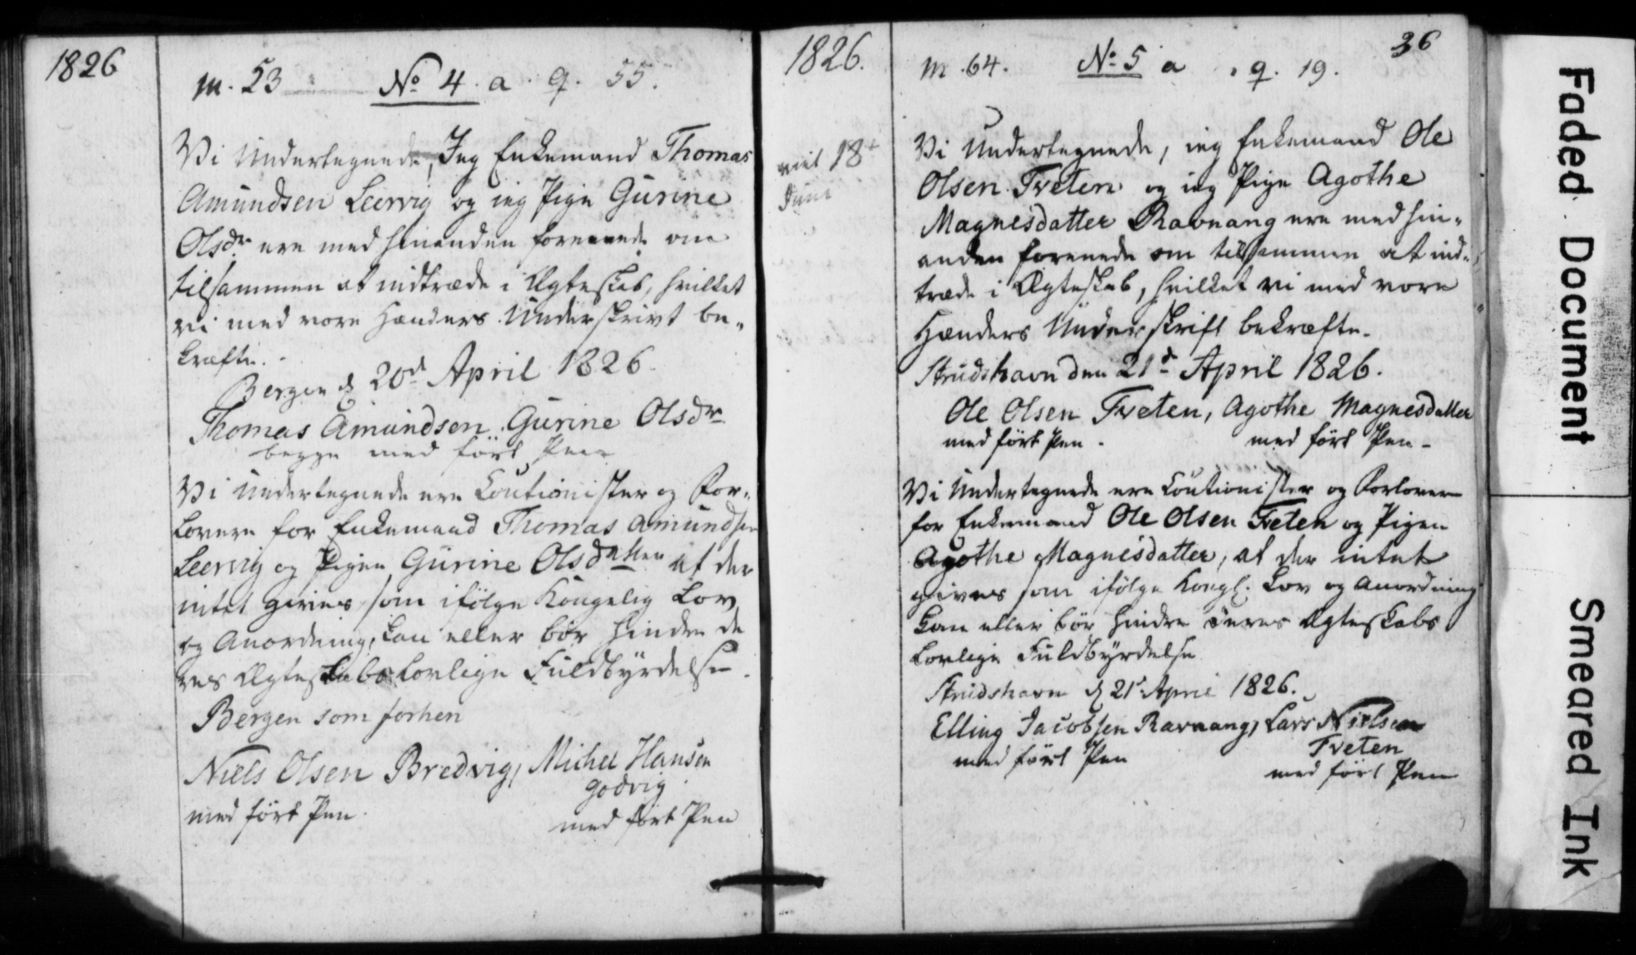 1826
m. 53 No 4. a. q. 55.
Vi Undertegnede, Jeg Enkemand Thomas
Amundsen Leervig og jeg Pige Gurine
Olsdr. ere med hinanden forenede om
tilsammen at indtræde i Ægteskab, hvilket
vi med vore Hænders Underskrivt be-
kræfte.
Bergen d. 20d April 1826.
Thomas Amundsen Gurine Olsdr
begge med ført Pen
Vi Undertegnede ere Coutionister og For-
lovere for Enkemand Thomas Amundsen
Leervig og Pigen Gurine Olsdatter at der
intet gives, som ifølge Kongelig Lov
og Anordning, kan eller bør hindre de
res Ægteskabs lovlige Fuldbyrdelse.
Bergen som forhen
Niels Olsen Bredvig, Michel Hansen
Godvig
med ført Pen. med ført Pen
1826.
18
Juni
36
m. 64. No 5 a . q. 19.
Vi Undertegnede, jeg Enkemand Ole
Olsen Tveten og jeg Pige Agothe
Magnesdatter Ravnang ere med hin-
anden forenede om tilsammen at ind-
træde i Ægteskab, hvilket vi med vore
Hænders Underskrift bekræfte.
Strudshavn den 21d April 1826.
Ole Olsen Tveten, Agothe Magnesdatter
med ført Pen. med ført Pen -
Vi Undertegnede ere Coutionister og Forlovere
for Enkemand Ole Olsen Tveten og Pigen
Agothe Magnesdatter, at der intet
gives som ifølge Kongl. Lov og Anordning
kan eller bør hindre deres Ægteskabs
lovlige Fuldbyrdelse
Strudshavn d. 21d April 1826.
Elling Jacobsen Ravnang, Lars Nielsen
Tveten
med ført Pen med ført Pen
Faded Document
Smeared Ink